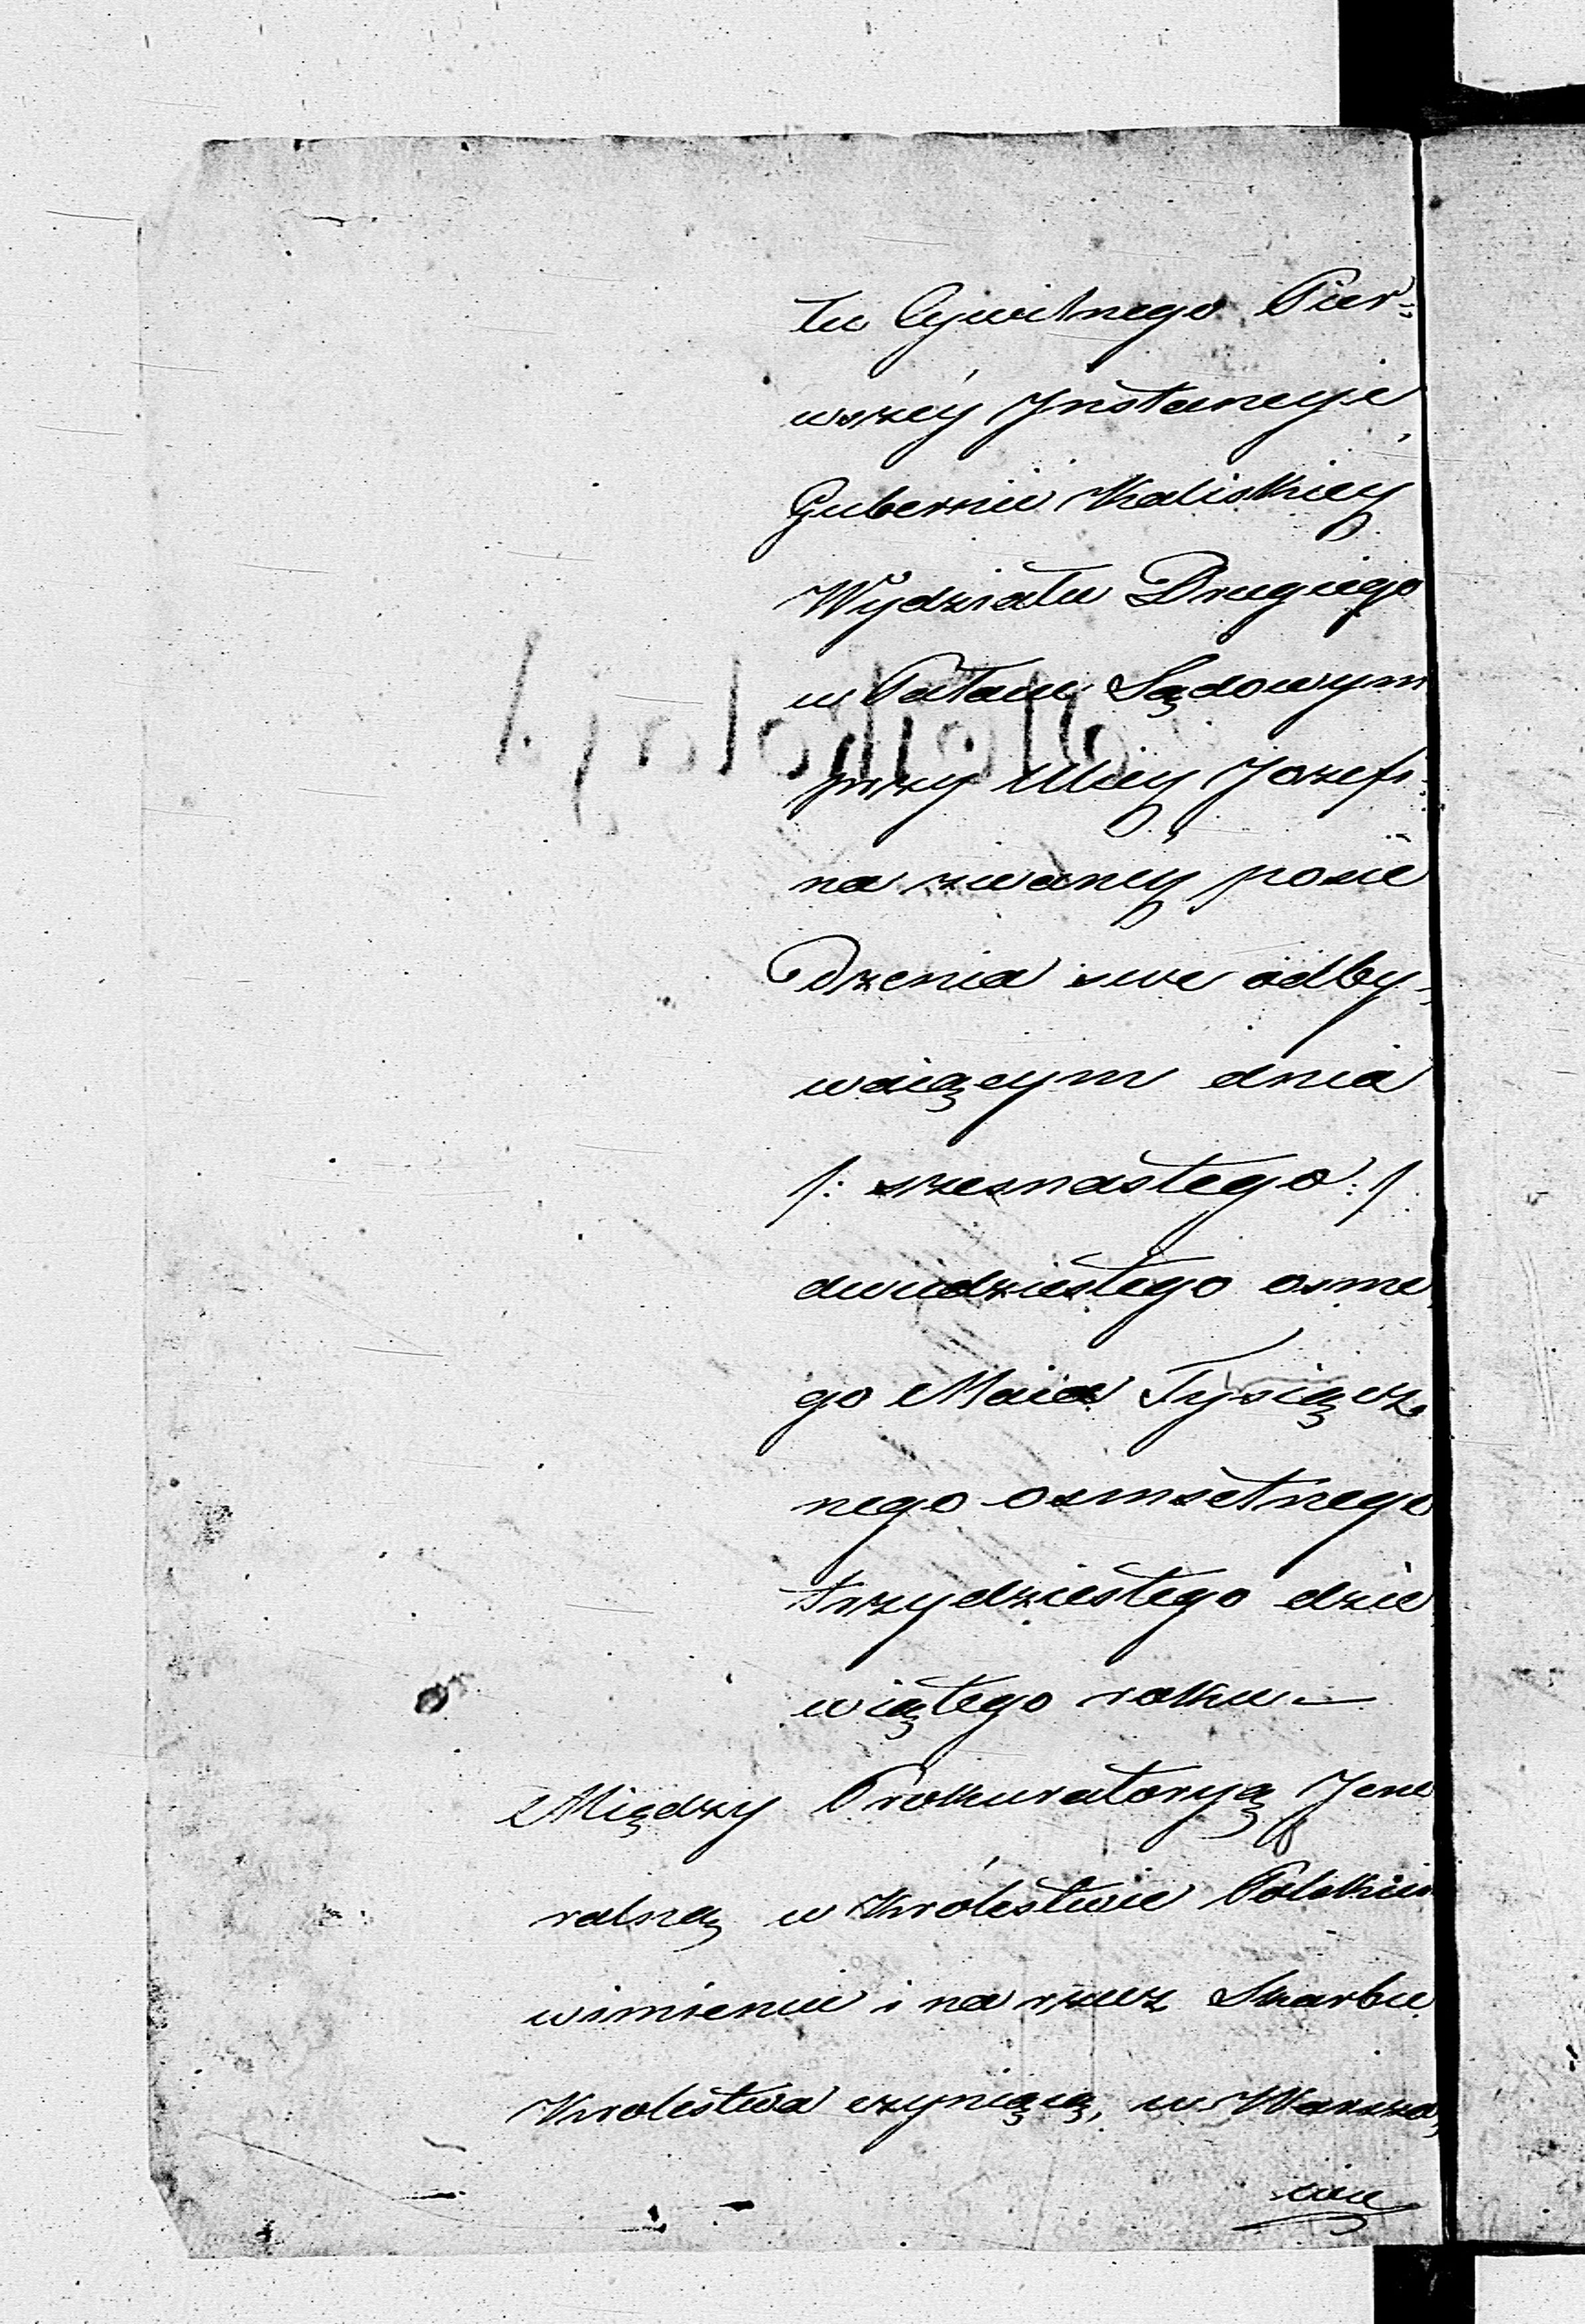 łu Cywilnego Pier-
wszéy Instancyi
Gubernii Kaliskiéy
Wydziału Drugiego
w Pałacu Sądowym
przy Ulicy Jozefi-
na zwanéy posie
dzenia swe odby-
waiącym dnia
/: szesnastego :/
dwudziestego osme
go Maia Tysiącz-
nego osmsetnego
trzydziestego dzie
wiątego roku —
Między Prokuratoryą Jene
ralną w Królestwie Polskim
wimieniu i na rzecz Skarbu
Krolestwa czyniącą, w Warsza-
wie